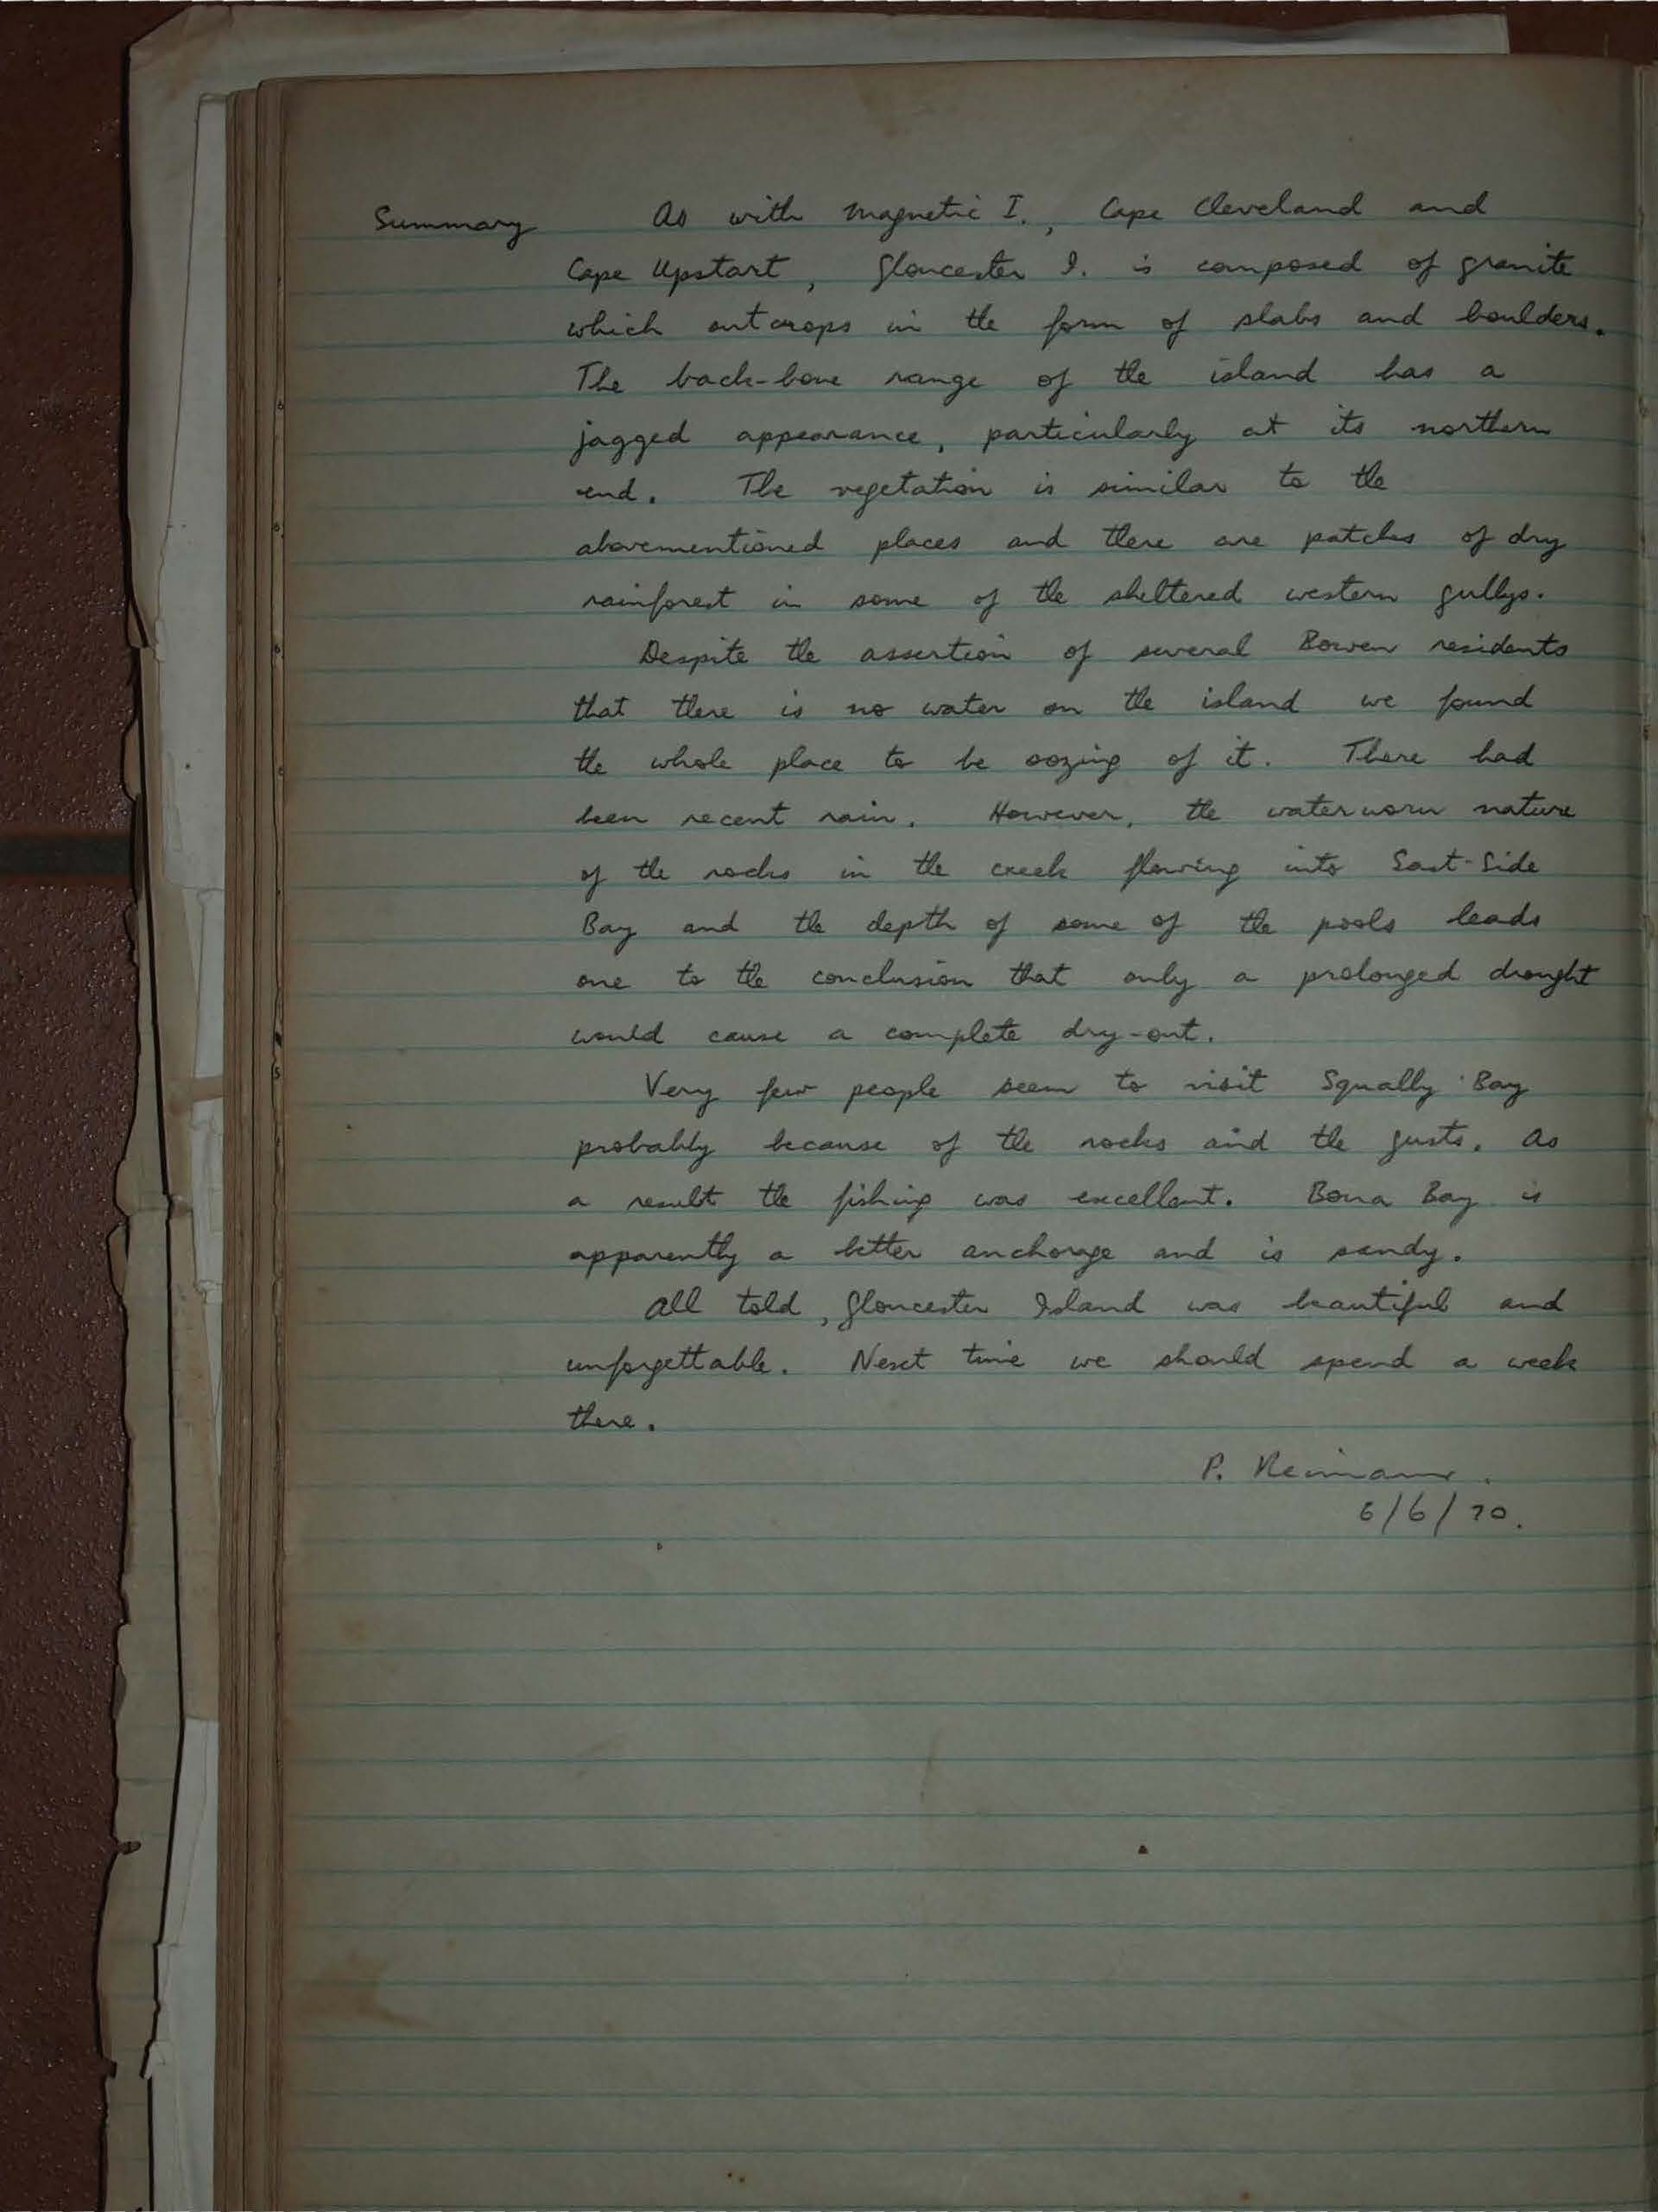 Summary As with Magnetic I., Cape Cleveland and
Cape Upstart, Gloucester I. is composed of granite
which outcrops in the form of slabs and boulders.
The back-bone range of the island has a
jagged appearance, particularly at its northern
end. The vegetation is similar to the
abovementioned places and there are patches of dry
rainforest in some of the sheltered western gullys.
Despite the assertion of several Bowen residents
that there is no water on the island we found
the whole place to be oozing of it. There had
been recent rain. However, the waterworn nature
of the rocks in the creek flowing into East-Side
Bay and the depth of some of the pools leads
one to the conclusion that only a prolonged drought
would cause a complete dry-out.
Very few people seem to visit Squally Bay
probably because of the rocks and the gusts. As
a result the fishing was excellent. Bona Bay is
apparently a better anchorage and is sandy.
All told, Gloucester Island was beautiful and
unforgettable. Next time we should spend a week
there.
P. Reimann.
6/6/70.